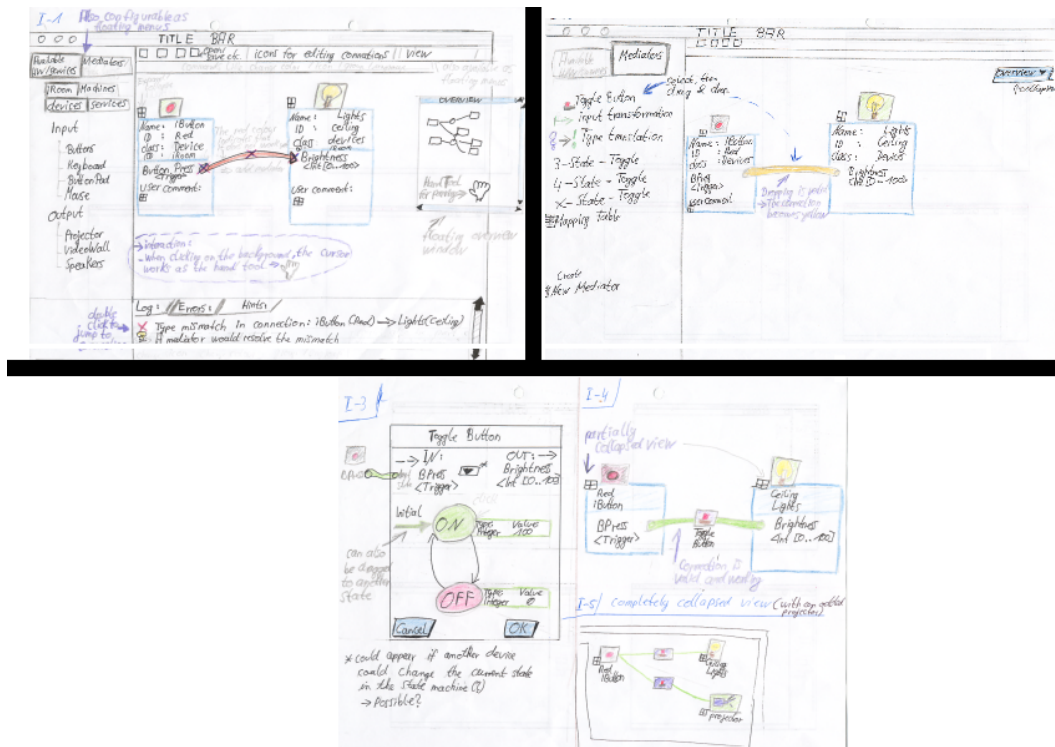 I-1
Also configurable as
floating menus
TITLE BAR
Available
HW/Services
Mediators
Open/
Save etc.
icons for editing connections
View
iRoom
Machines
devices
services
Input
Buttons
Keyboard
ButtonPad
Mouse
Output
Projector
VideoWall
Speakers
Name: iButton
ID : Red
class: Device
ID : iRoom
Button Press
<Trigger>
user comment:
Name: Lights
ID : Ceiling
class devices
Brightness
<Int [0..100]>
user comment:
also available as
floating menus
OVERVIEW
Hand Tool
for panning
floating overview
window
→ interaction:
- when clicking on the background, the cursor
works as the hand tool →
Log:
Errors:
Hints:
double
click to
jump to
Type mismatch in connection: iButton (Red) → Lights (Ceiling)
A mediator would resolve the mismatch
TITLE BAR
Available
HW/Services
Mediators
select, then
drag & drop
Overview
Toggle Button
input transformation
Type translation
3-State - Toggle
4-State - Toggle
X-State - Toggle
Mapping Table
Create
New Mediator
Name: iButton
ID : Red
class: Devices
BPress
<Trigger>
user comment
Name: Lights
ID : Ceiling
class: Devices
Brightness
<Int [0..100]>
Dropping is valid
→ The connection
becomes yellow
I-3
Toggle Button
→ IN:
BPress
<Trigger>
OUT: →
Brightness
<Int [0..100]>
BPress
Initial
ON
Type: Value
Integer 100
can also
be dragged
to another
state
OFF
Type: Value
Integer 0
Cancel
OK
* could appear if another device
could change the current state
in the state machine (?)
→ Possible?
I-4
partially
collapsed view
Red
iButton
BPress
<Trigger>
Toggle
Button
Ceiling
Lights
Brightness
<Int [0..100]>
Connection is
valid and working
I-5 completely collapsed view (with an added
projector)
Red
iButton
Ceiling
Lights
projector